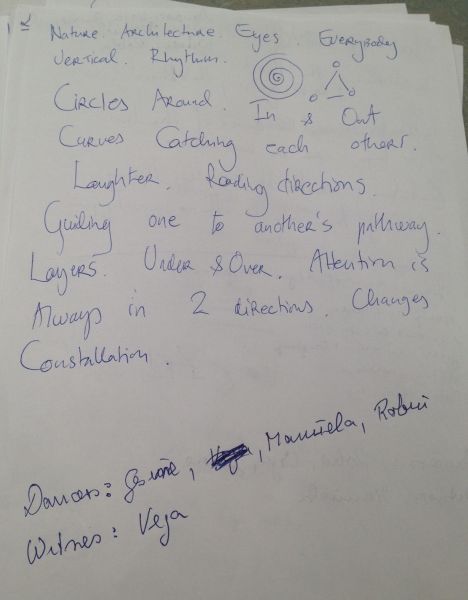 Nature. Architecture. Eyes. Everybody
Vertical. Rhythm.
Circles Around. In & Out
Curves Catching each other.
Laughter. Reading directions.
Guiding one to another's pathway.
Layers. Under & Over. Attention is
Always in 2 directions. Changes
Constallation.
Dancers: , Manuela, Robin
Witnes: Veja